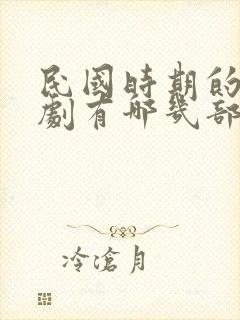 民國時期的
劇有哪幾部
冷滄月